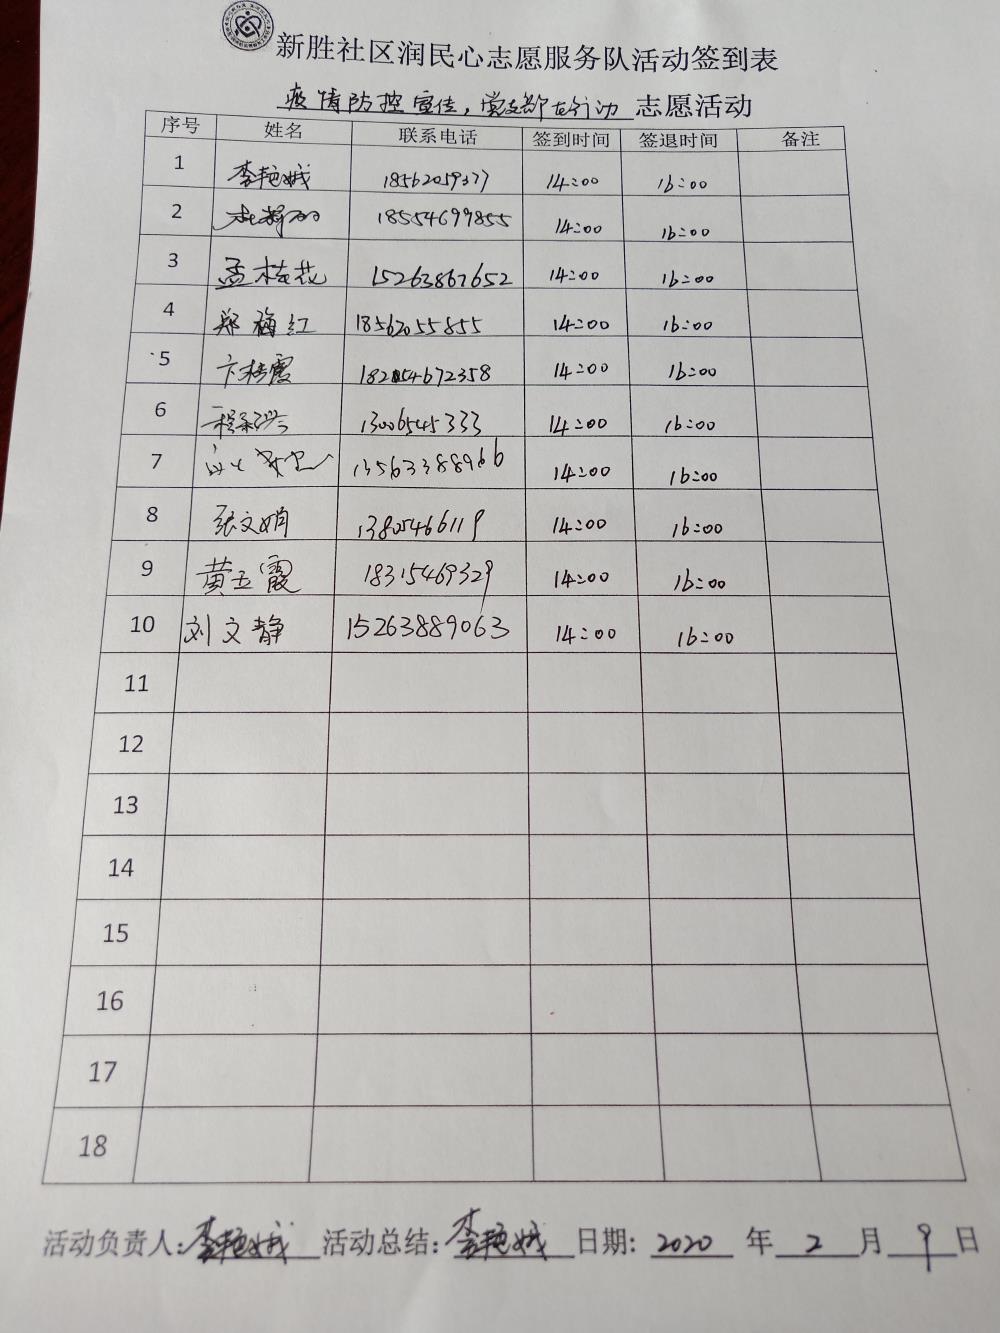 新胜社区润民心志愿服务队活动签到表
疫情防控宣传，党支部在行动 志愿活动
序号 姓名 联系电话 签到时间 签退时间 备注
1 李艳娥 18562059377 14:00 16:00
2 18554699855 14:00 16:00
3 孟桂花 15263867652 14:00 16:00
4 郑梅红 18562055855 14:00 16:00
5 卞桂霞 18254672358 14:00 16:00
6 13006545333 14:00 16:00
7 13563388966 14:00 16:00
8 张文娟 13805466119 14:00 16:00
9 黄玉霞 18315469329 14:00 16:00
10 刘文静 15263889063 14:00 16:00
11
12
13
14
15
16
17
18
活动负责人：李艳娥 活动总结：李艳娥 日期：2020 年 2 月 9 日